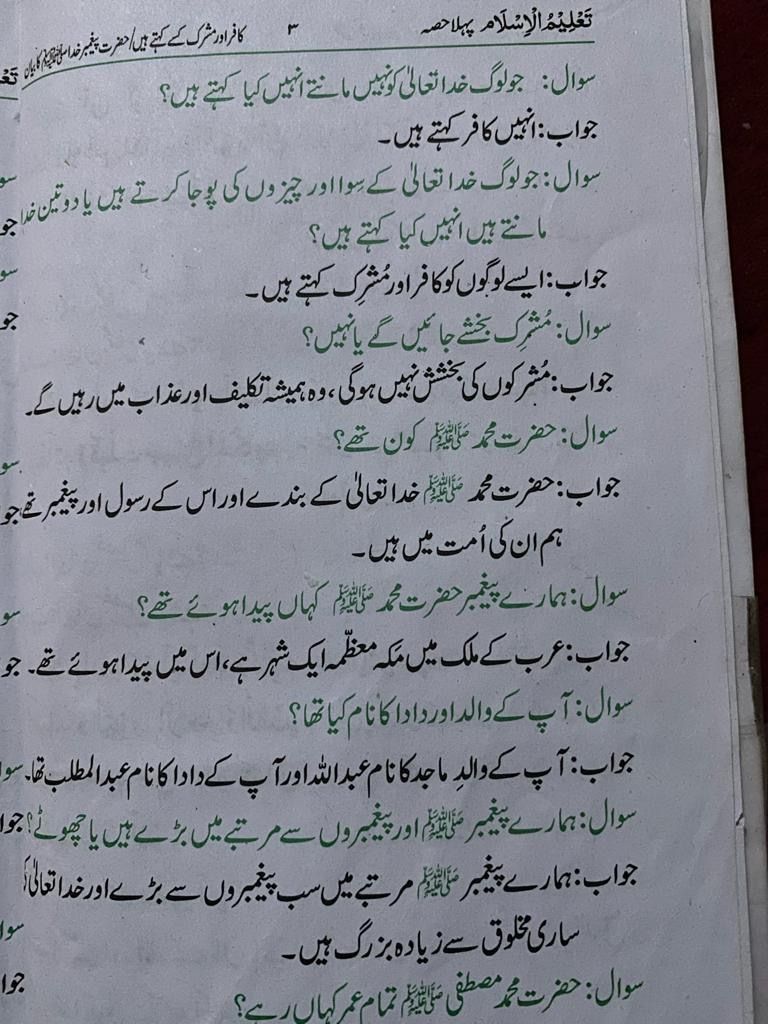 تَعْلِیْمُ الْاِسْلَام پہلا حصہ ۳ کافر اور مشرک کسے کہتے ہیں/حضرت پیغمبر خدا ﷺ کا بیان
سوال: جو لوگ خدا تعالیٰ کو نہیں مانتے انہیں کیا کہتے ہیں؟
جواب: انہیں کافر کہتے ہیں۔
سوال: جو لوگ خدا تعالیٰ کے سوا اور چیزوں کی پوجا کرتے ہیں یا دو تین خدا
مانتے ہیں انہیں کیا کہتے ہیں؟
جواب: ایسے لوگوں کو کافر اور مُشرِک کہتے ہیں۔
سوال: مُشرِک بخشے جائیں گے یا نہیں؟
جواب: مُشرکوں کی بخشش نہیں ہوگی، وہ ہمیشہ تکلیف اور عذاب میں رہیں گے۔
سوال: حضرت محمد ﷺ کون تھے؟
جواب: حضرت محمد ﷺ خدا تعالیٰ کے بندے اور اس کے رسول اور پیغمبر تھے
ہم ان کی اُمت میں ہیں۔
سوال: ہمارے پیغمبر حضرت محمد ﷺ کہاں پیدا ہوئے تھے؟
جواب: عرب کے ملک میں مَکہ معظّمہ ایک شہر ہے، اس میں پیدا ہوئے تھے۔
سوال: آپ کے والد اور دادا کا نام کیا تھا؟
جواب: آپ کے والدِ ماجد کا نام عبداللہ اور آپ کے دادا کا نام عبدالمطلب تھا۔
سوال: ہمارے پیغمبر ﷺ اور پیغمبروں سے مرتبے میں بڑے ہیں یا چھوٹے؟
جواب: ہمارے پیغمبر ﷺ مرتبے میں سب پیغمبروں سے بڑے اور خدا تعالیٰ کی
ساری مخلوق سے زیادہ بزرگ ہیں۔
سوال: حضرت محمد مصطفیٰ ﷺ تمام عمر کہاں رہے؟